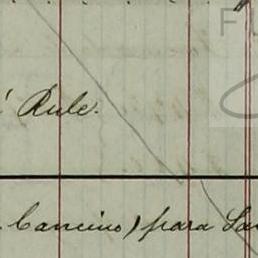 Rule.
Cancino) para